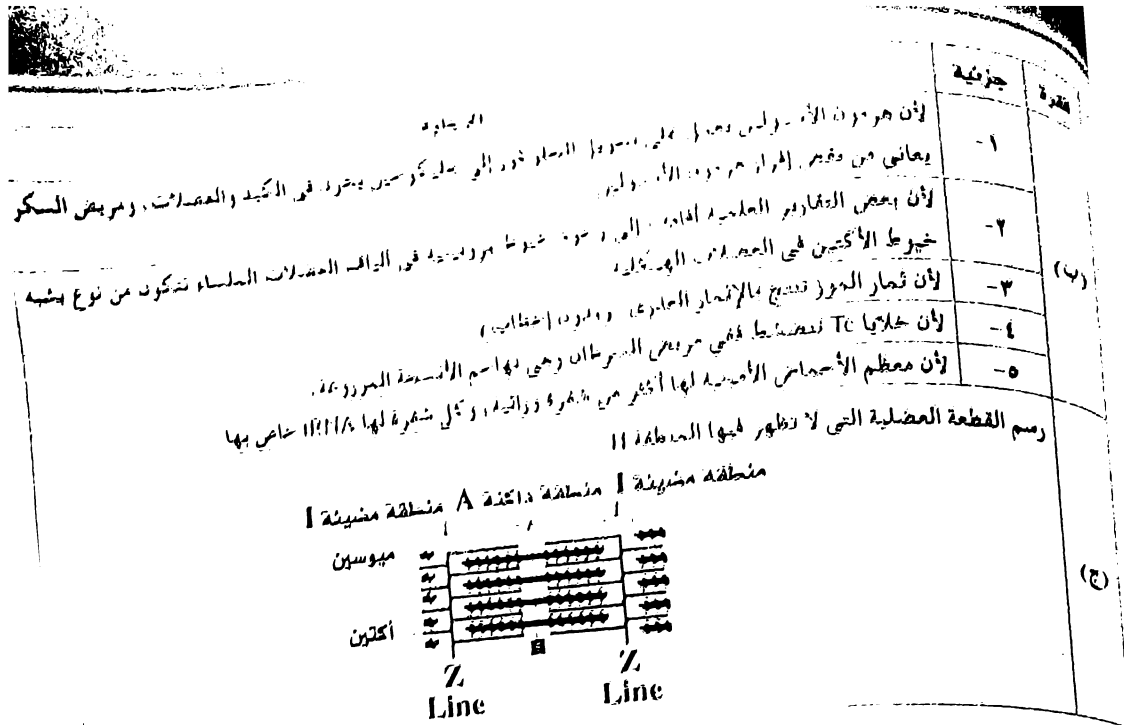 فقرة
جزئية
(ب)
١- لأن هرمون الأنسولين يعمل على تحويل إلى جليكوجين يخزن في الكبد والعضلات، ومريض السكر
يعاني من نقص إفراز هرمون الأنسولين
٢- لأن بعض التقارير العلمية إلى وجود خيوط بروتينية في ألياف العضلات الملساء تتكون من نوع يشبه
خيوط الأكتين في العضلات الهيكلية
٣- لأن ثمار الموز تنتج بالإثمار العذري وبدون إخصاب
٤- لأن خلايا Tc تنشط في مريض السرطان وهي تهاجم الأنسجة المزروعة.
٥- لأن معظم الأحماض الأمينية لها أكثر من شفرة وراثية، وكل شفرة لها خاص بها
(ج)
رسم القطعة العضلية التي لا تظهر فيها المنطقة H
منطقة مضيئة I منطقة داكنة A منطقة مضيئة I
ميوسين
أكتين
Z Line
Z Line